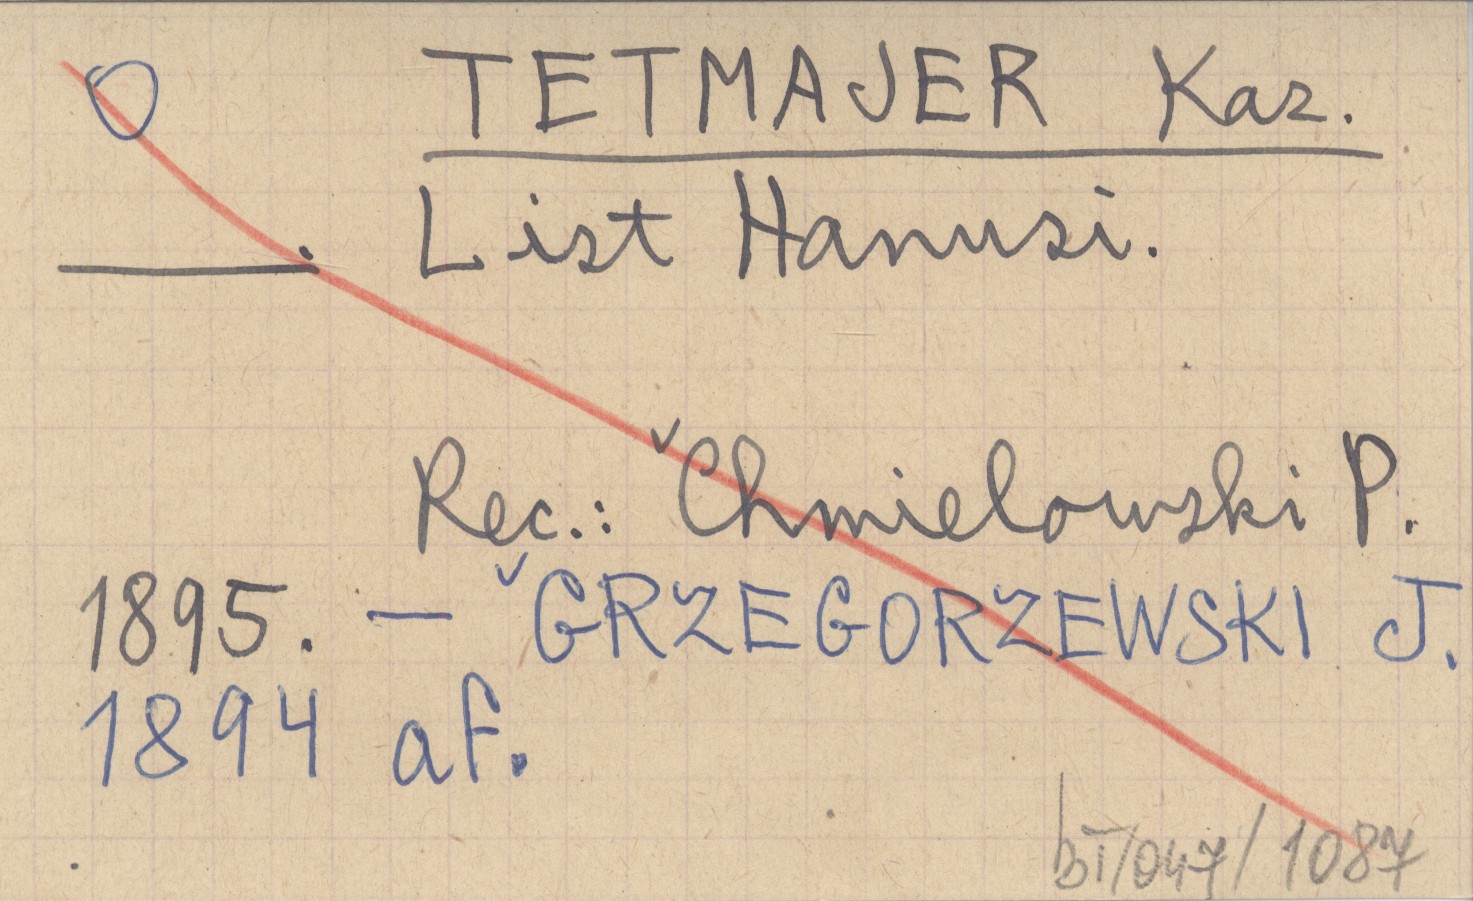 TETMAJER Kaz.
List Hanusi.
Rec.: Chmielowski P.
1895. — GRZEGORZEWSKI J.
1894 af.
bT/047/1087